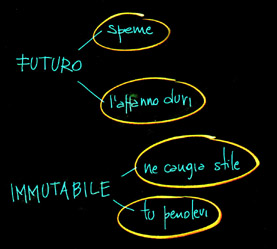 speme
FUTURO
l'affanno duri
ne cangia stile
IMMUTABILE
tu pendevi